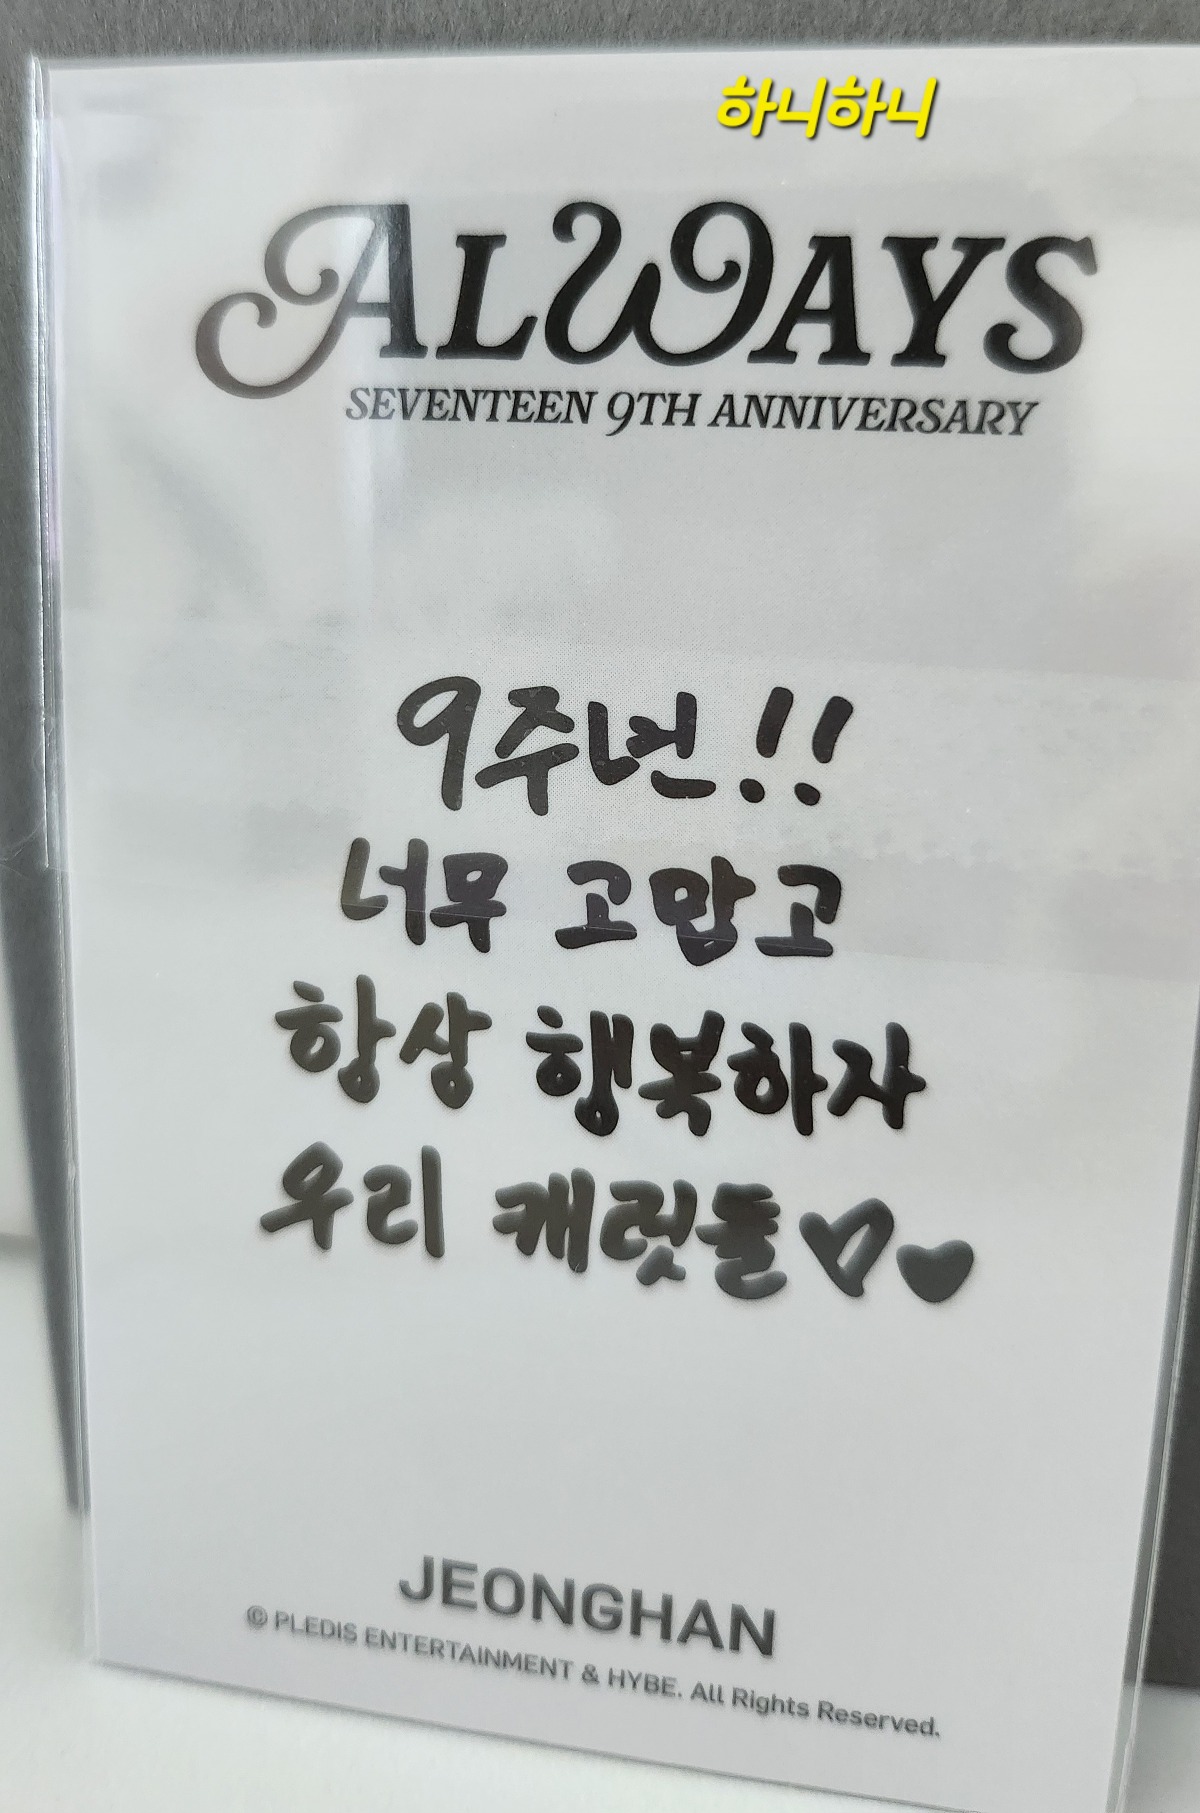 하니하니
ALWAYS
SEVENTEEN 9TH ANNIVERSARY
9주년!!
너무 고맙고
항상 행복하자
우리 캐럿들♡♥
JEONGHAN
© PLEDIS ENTERTAINMENT & HYBE. All Rights Reserved.